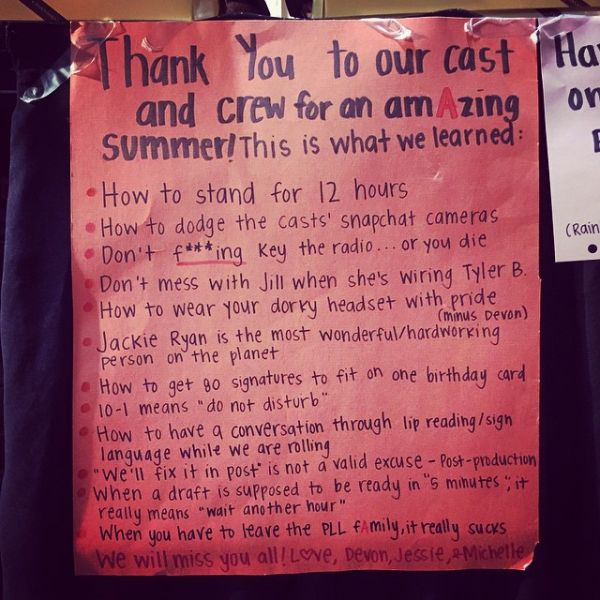 Thank You to our cast
and crew for an amAzing
summer! This is what we learned:
• How to stand for 12 hours
• How to dodge the casts' snapchat cameras
• Don't f***ing key the radio... or you die
• Don't mess with Jill when she's wiring Tyler B.
• How to wear your dorky headset with pride
(minus Devon)
• Jackie Ryan is the most wonderful/hardworking
person on the planet
• How to get 80 signatures to fit on one birthday card
• 10-1 means "do not disturb"
• How to have a conversation through lip reading/sign
language while we are rolling
• "We'll fix it in post" is not a valid excuse - Post-production
• When a draft is supposed to be ready in "5 minutes", it
really means "wait another hour"
• When you have to leave the PLL fAmily, it really sucks
We will miss you all! L♡ve, Devon, Jessie, & Michelle
Ha
on
(Rain
•